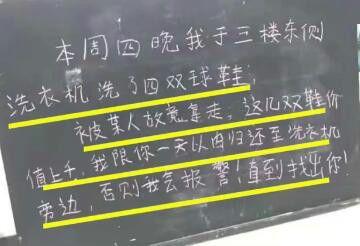 本周四晚我于三楼东侧
洗衣机洗了四双球鞋，
被某人故意拿走，这几双鞋价
值上千，我限你一天以内归还至洗衣机
旁边，否则我会报警！直到找出你！